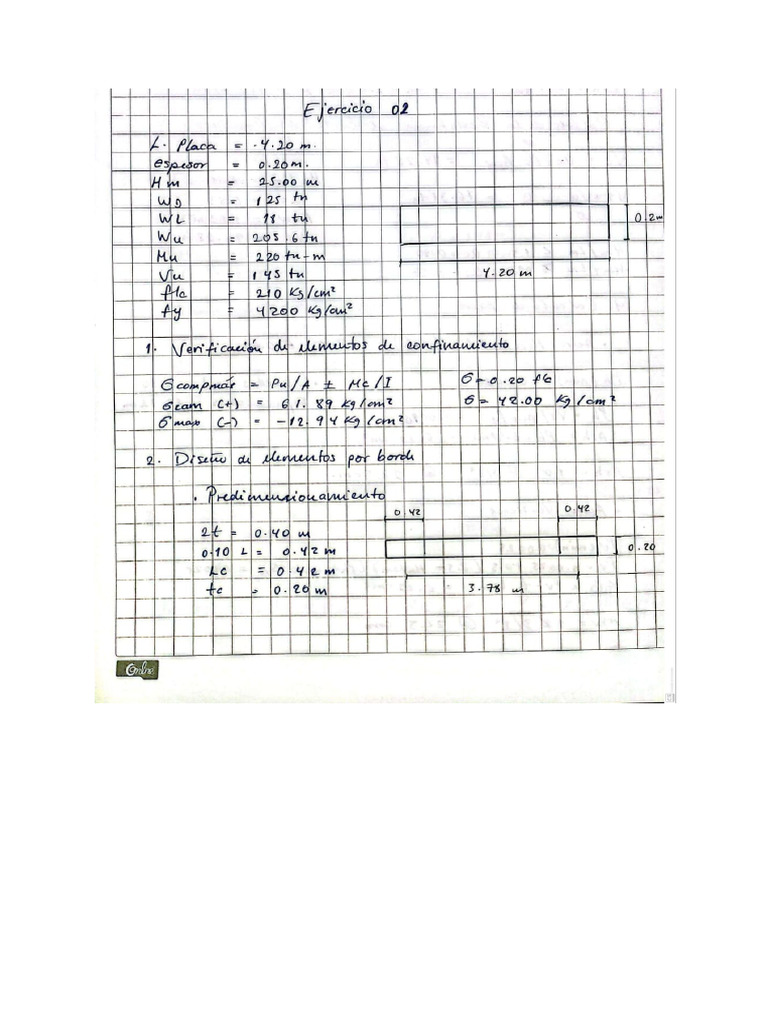 Ejercicio 02
L. Placa = 4.20 m.
espesor = 0.20 m.
Hm = 25.00 m
WD = 125 tn
WL = 18 tn
Wu = 205.6 tn
Mu = 220 tn-m
Vu = 145 tn
f'c = 210 Kg/cm²
fy = 4200 Kg/cm²
0.2m
4.20 m
1. Verificación de elementos de confinamiento
σcompmáx = Pu/A ± Mc/I σ = 0.20 f'c
σcam (+) = 61.89 Kg/cm² σ = 42.00 Kg/cm²
σmax (-) = -12.94 Kg/cm²
2. Diseño de elementos por borde
. Predimencionamiento
0.42 0.42
2t = 0.40 m
0.10 L = 0.42 m
Lc = 0.42 m
tc = 0.20 m
0.20
3.78 m